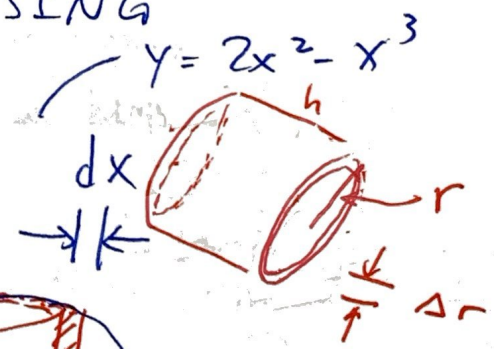 SING
y = 2x² - x³
h
dx
r
Δr